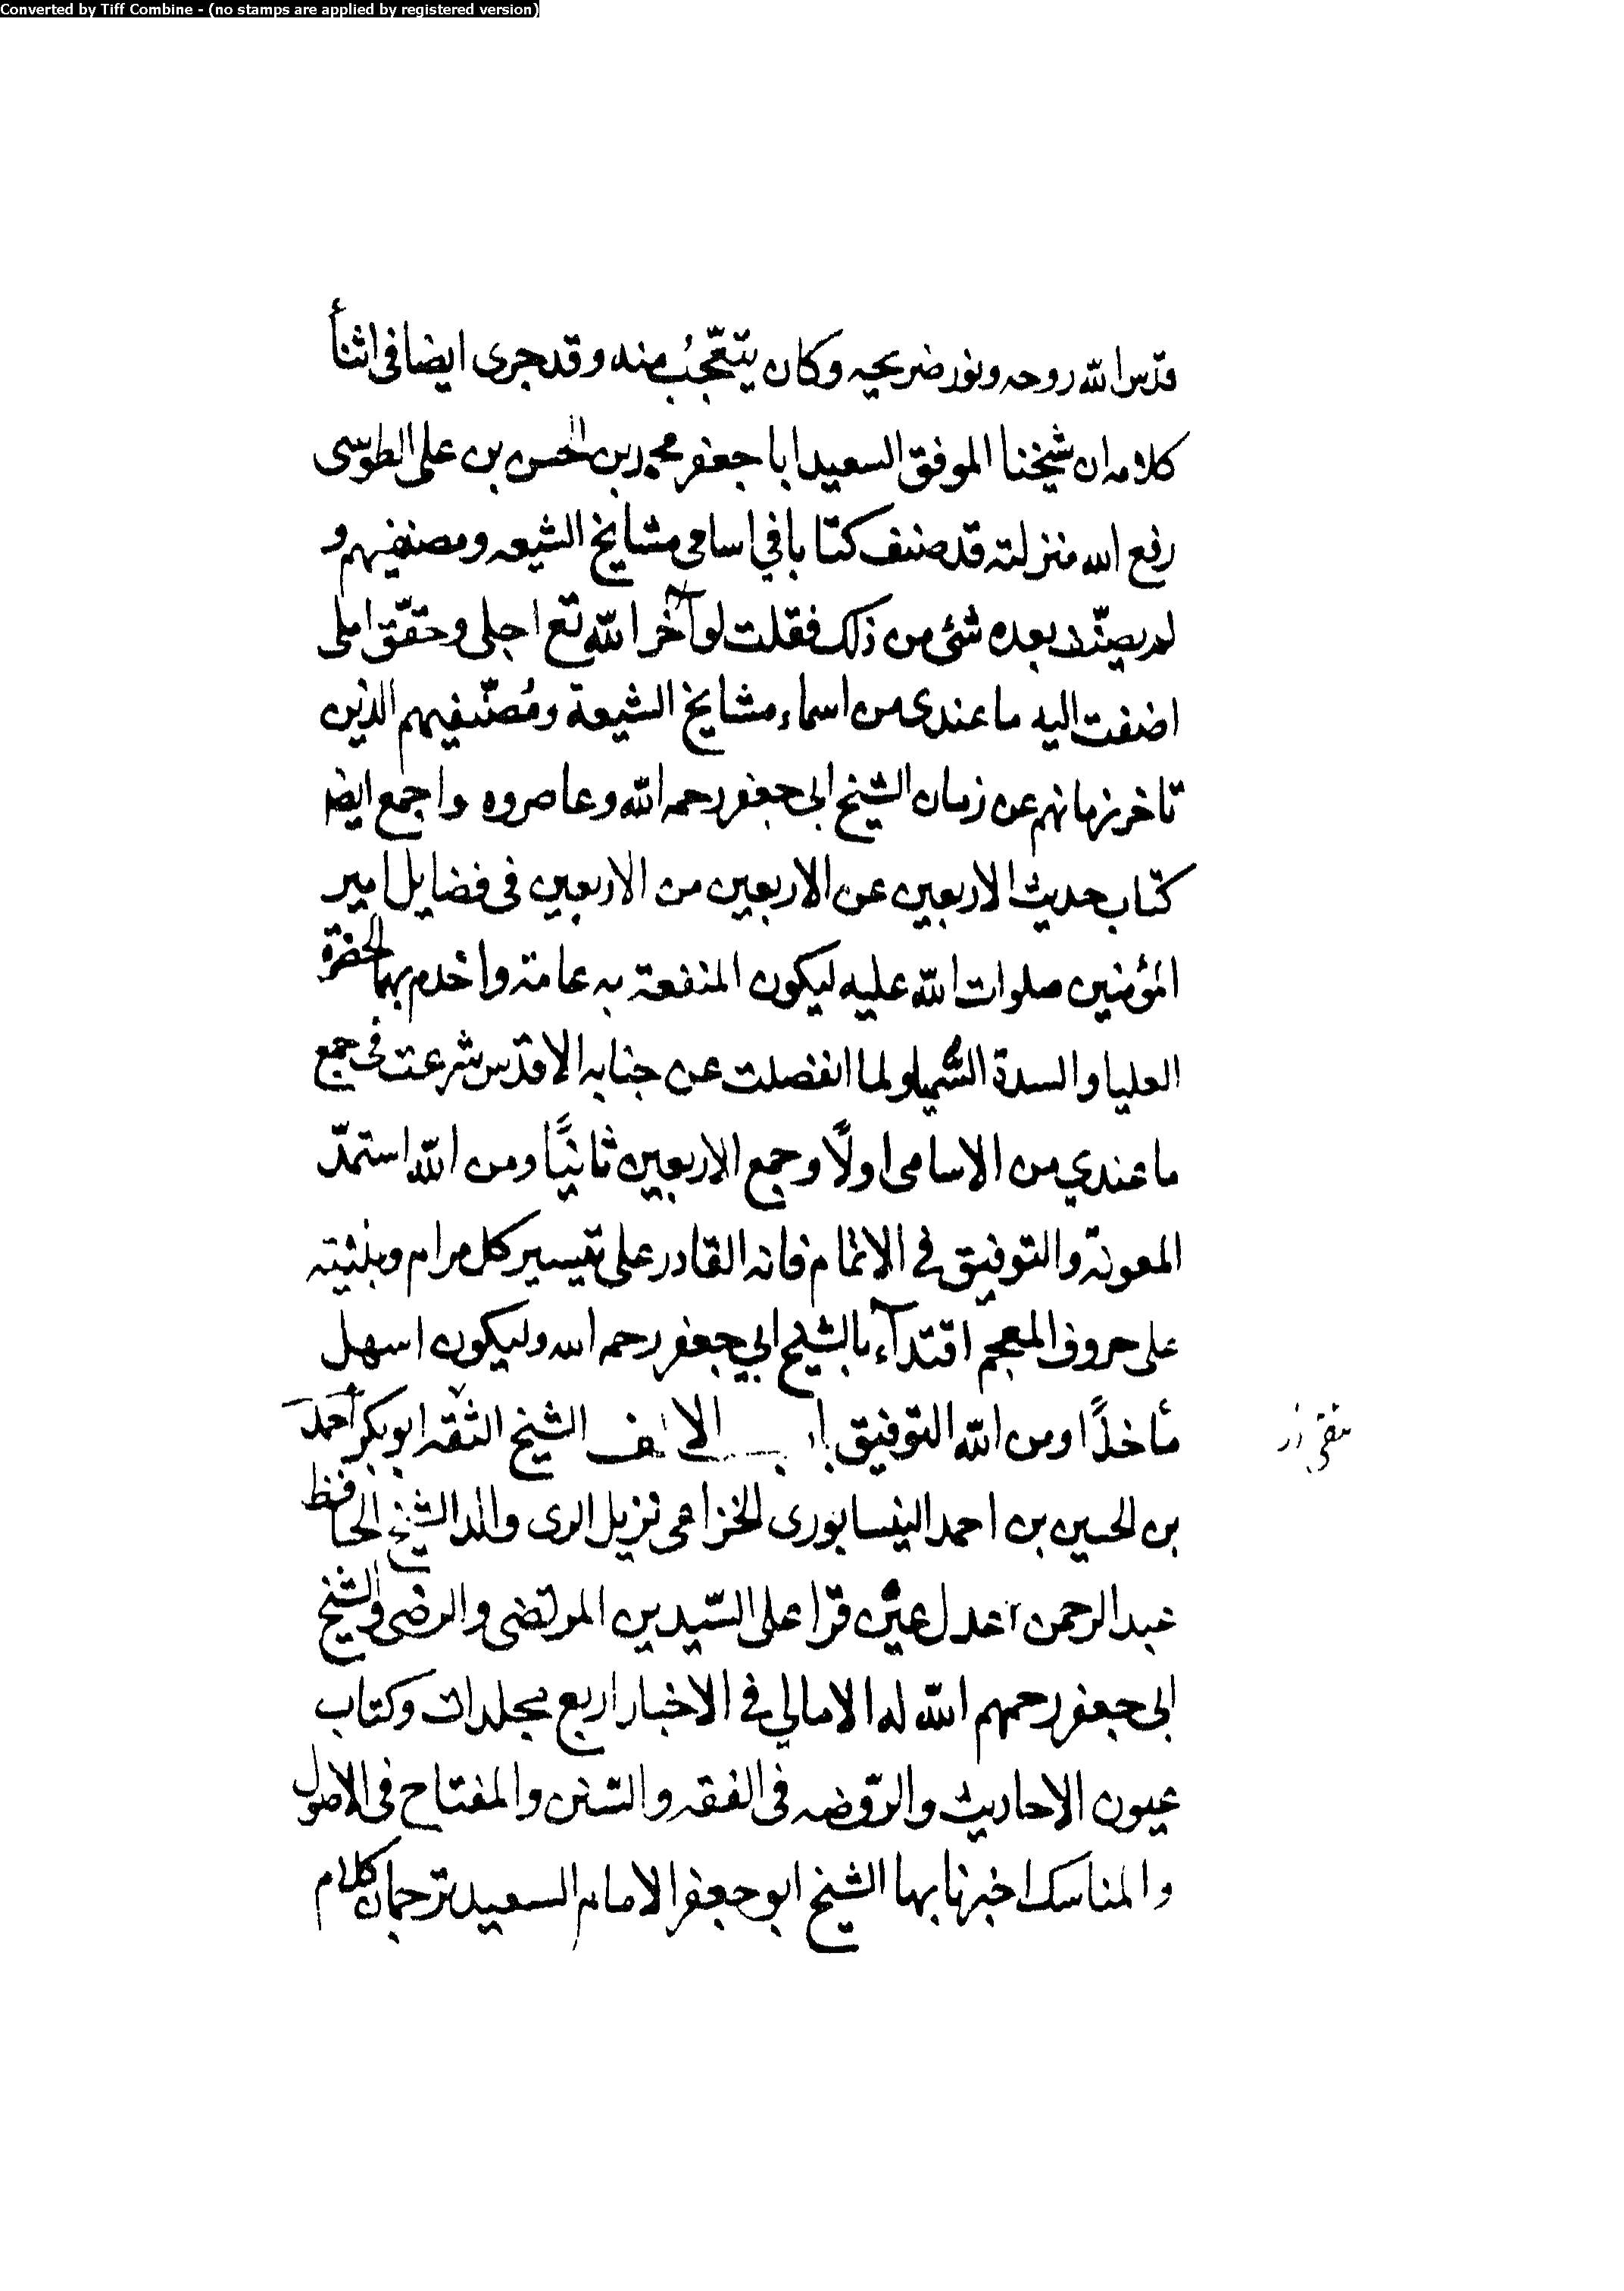 Converted by Tiff Combine - (no stamps are applied by registered version)
قدّس الله روحه ونور ضريحه وكان يتعّجبُ منه وقد جرى ايضا فى اثنأ
كلامه ان شيخنا الموفق السعيد ابا جعفر محمد بن الحسن بن على الطوسى
رفع الله منزلته قد صنف كتابا في اسامى مشايخ الشيعه ومصنفيهم و
لم يصنّف بعده شئ من ذلك فقلت لو آخر الله تع اجلى وحقّق املى
اضفت اليه ما عندى من اسماء مشايخ الشيعة ومُصنّفيهم الذين
تاخر زمانهم عن زمان الشيخ ابى جعفر رحمه الله وعاصروه واجمع ايضا
كتاب حديث الاربعين عن الاربعين من الاربعين فى فضايل امير
المؤمنين صلوات الله عليه ليكون المنفعة به عامة واخدم بهما الحضرة
العليا والسدة الشميا ولما انفصلت عن جنابه الاقدس شرعت فى جمع
ما عندي من الاسامى اولًا وجمع الاربعين ثانيًا ومن الله استمدّ
المعونة والتوفيق في الاتمام فانه القادر على تيسير كل مرام وبنثيته
على حروف المعجم اقتدآء بالشيخ ابي جعفر رحمه الله وليكون اسهل
مأخذًا ومن الله التوفيق باب الالف الشيخ الثقه ابو بكر احمد
بن الحسين بن احمد النيسابورى الخزاعى نزيل الرى والد الشيخ الحافظ
عبد الرحمن عدل عين قرا على السّيدين المرتضى والرضى والشيخ
ابى جعفر رحمهم الله له الامالي في الاخبار اربع مجلدات وكتاب
عيون الاحاديث والرّوضه فى الفقه والسّنن والمفتاح فى الاصول
والمناسك اخبرنا بها الشيخ ابو جعفر الامام السعيد ترجمان كلام